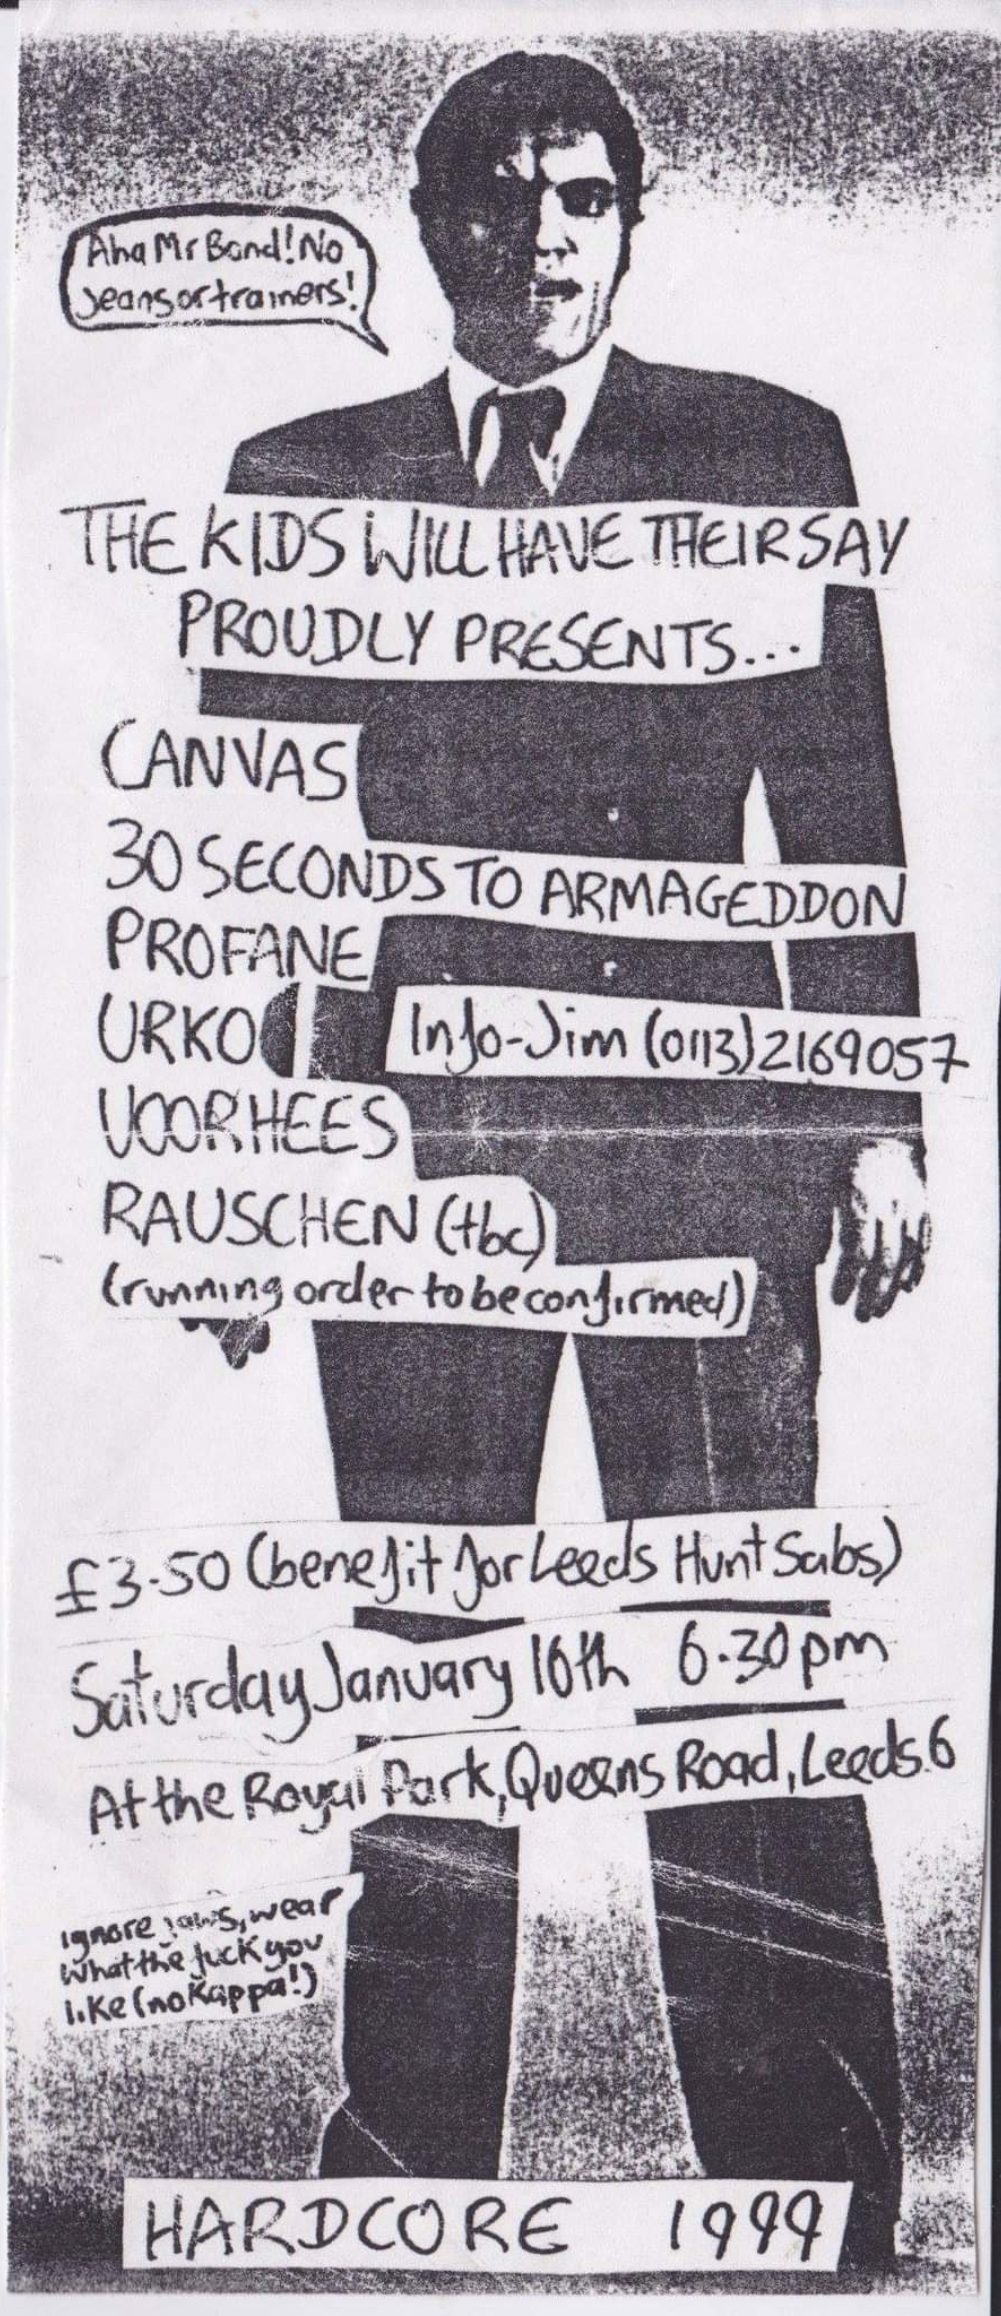 Aha Mr Bond! No
jeans or trainers!
THE KIDS WILL HAVE THEIR SAY
PROUDLY PRESENTS...
CANVAS
30 SECONDS TO ARMAGEDDON
PROFANE
URKO
Info-Jim (0113) 2169057
VOORHEES
RAUSCHEN (tbc)
(running order to be confirmed)
£3.50 (benefit for Leeds Hunt Sabs)
Saturday January 16th 6.30pm
At the Royal Park, Queens Road, Leeds.6
ignore jaws, wear
what the fuck you
like (no Kappa!)
HARDCORE 1999